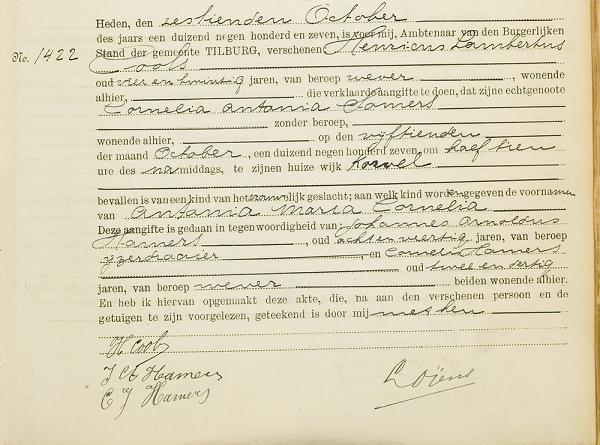 Heden, den zestienden October
des jaars een duizend negen honderd en zeven, is voor mij, Ambtenaar van den Burgerlijken
No. 1422 Stand der gemeente TILBURG, verschenen Henricus Lambertus
Cools
oud vier en twintig jaren, van beroep wever, wonende
alhier, die verklaarde aangifte te doen, dat zijne echtgenoote
Cornelia Antonia Hamers
zonder beroep,
wonende alhier, op den vijftienden
der maand October, een duizend negen honderd zeven, om half tien
ure des namiddags, te zijnen huize wijk Korvel
bevallen is van een kind van het vrouwelijk geslacht; aan welk kind worden gegeven de voornamen
van Antonia Maria Cornelia
Deze aangifte is gedaan in tegenwoordigheid van: Johannes Arnoldus
Hamers, oud acht en veertig jaren, van beroep
, en Cornelis Hamers
oud twee en
jaren, van beroep wever beiden wonende alhier.
En heb ik hiervan opgemaakt deze akte, die, na aan den verschenen persoon en de
getuigen te zijn voorgelezen, geteekend is door mij met hen
H Cools
J A Hamers
C J Hamers